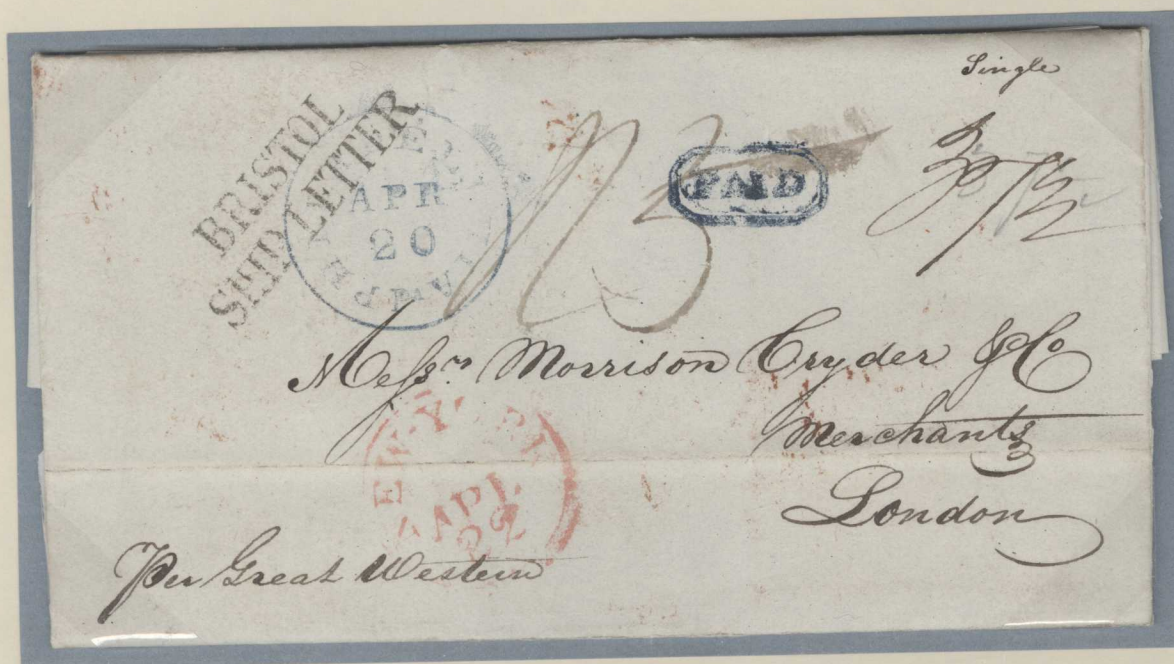 Single
BRISTOL
SHIP LETTER
APR
20
PAID
Messrs Morrison Cryder & Co
Merchants
London
APL
22
Per Great Western